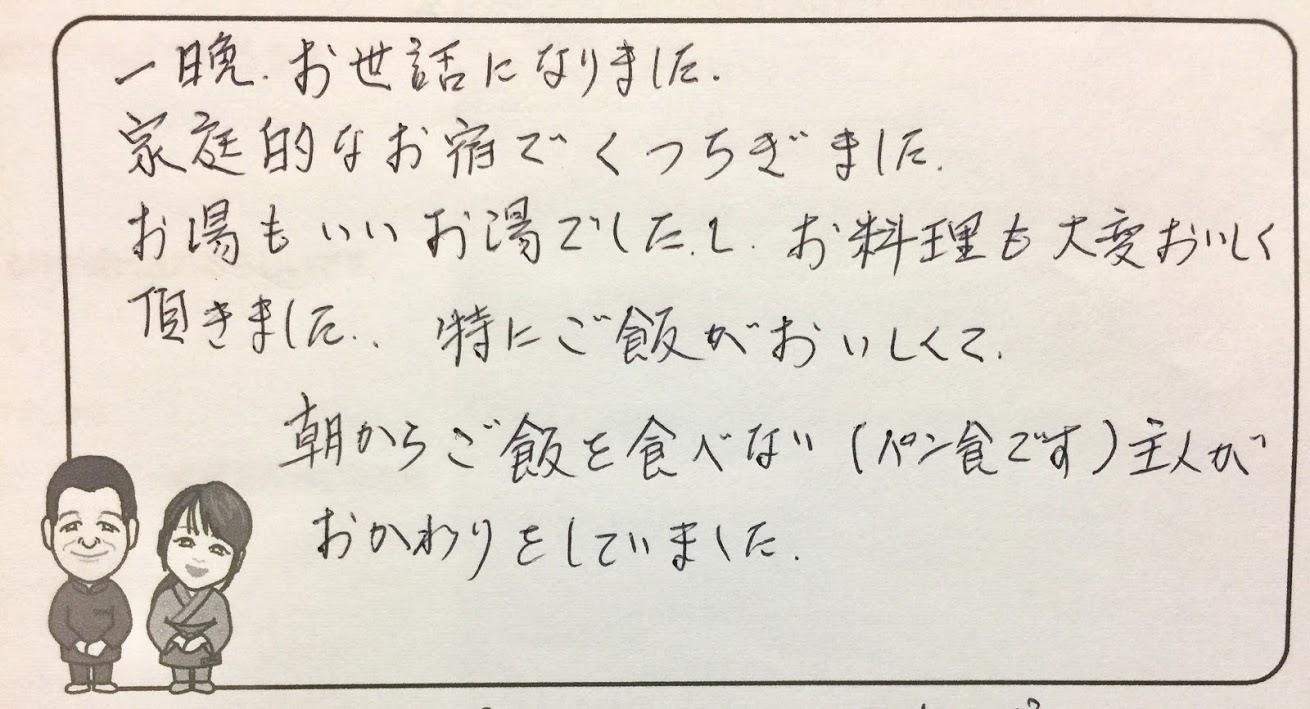 一晩.お世話になりました.
家庭的なお宿でくつちぎました.
お湯もいいお湯でしたし.お料理も大変おいしく
頂きました.. 特にご飯がおいしくて.
朝からご飯を食べない(パン食です)主人が
おかわりをしていました.